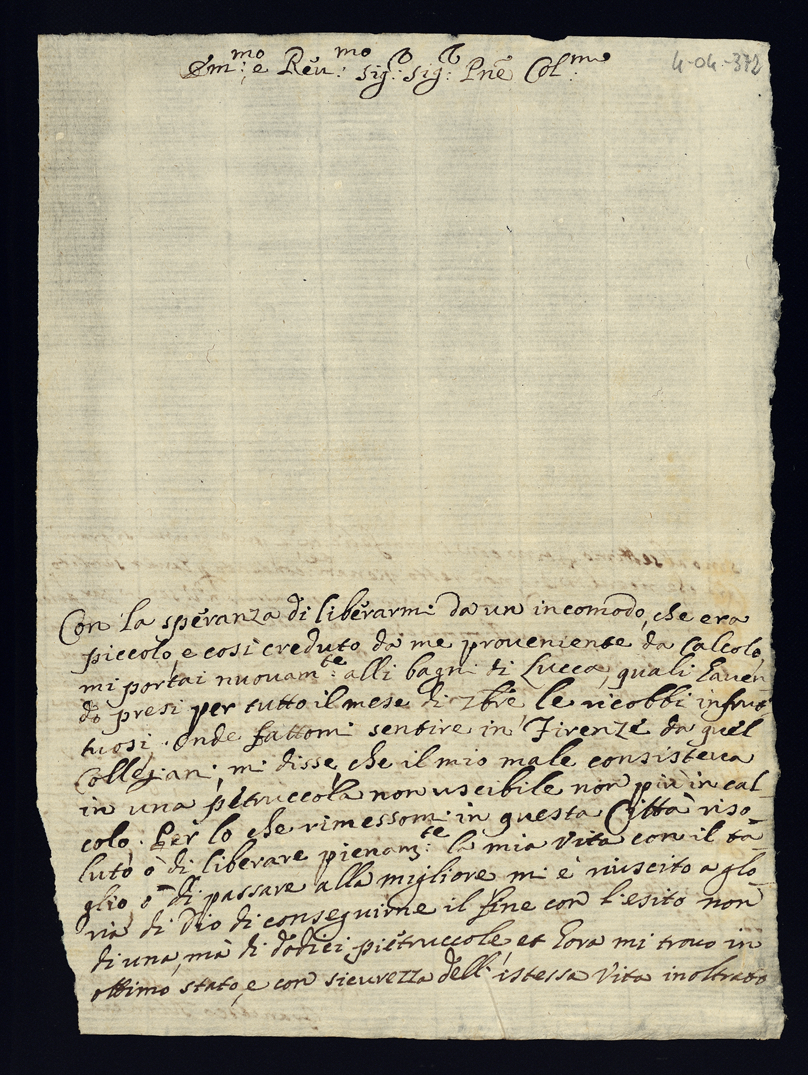 Em:mo e Reu:mo Sig:r Sig:r Pnē Col:mo
4-04-372
Con la speranza di liberarmi da un incomodo, che era
piccolo, e così creduto da me proveniente da calcolo,
mi portai nuovam:te alli bagni di Lucca, quali hauen
do presi per tutto il mese di 7bre le ricobbi infrut
tuosi. Onde fattomi sentire in Firenze da quel
Collegiani, mi disse, che il mio male consisteua
in una pietruccola non uscibile non più in cal
colo. Per lo che rimessomi in questa Città riso-
luto ò di liberare pienam:te la mia Vita con il ta-
glio ò di passare alla migliore mi è riuscito a glo-
ria di Dio di conseguirne il fine con l'esito non
di una, mà di dodici pietruccole et hora mi trouo in
ottimo stato, e con sicurezza dell'istessa Vita inoltrato